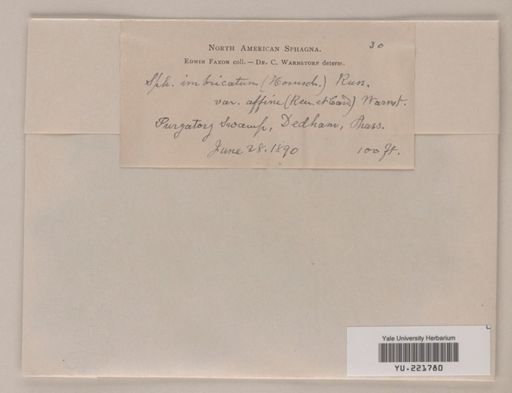 North American Sphagna. 30
Edwin Faxon coll. — Dr. C. Warnstorf determ.
Sph. imbricatum (Hornsch.) Russ.
var. affine (Ren. et Card) Warnst.
Purgatory Swamp, Dedham, Mass.
June 28. 1890 100 ft.
Yale University Herbarium
YU.221780